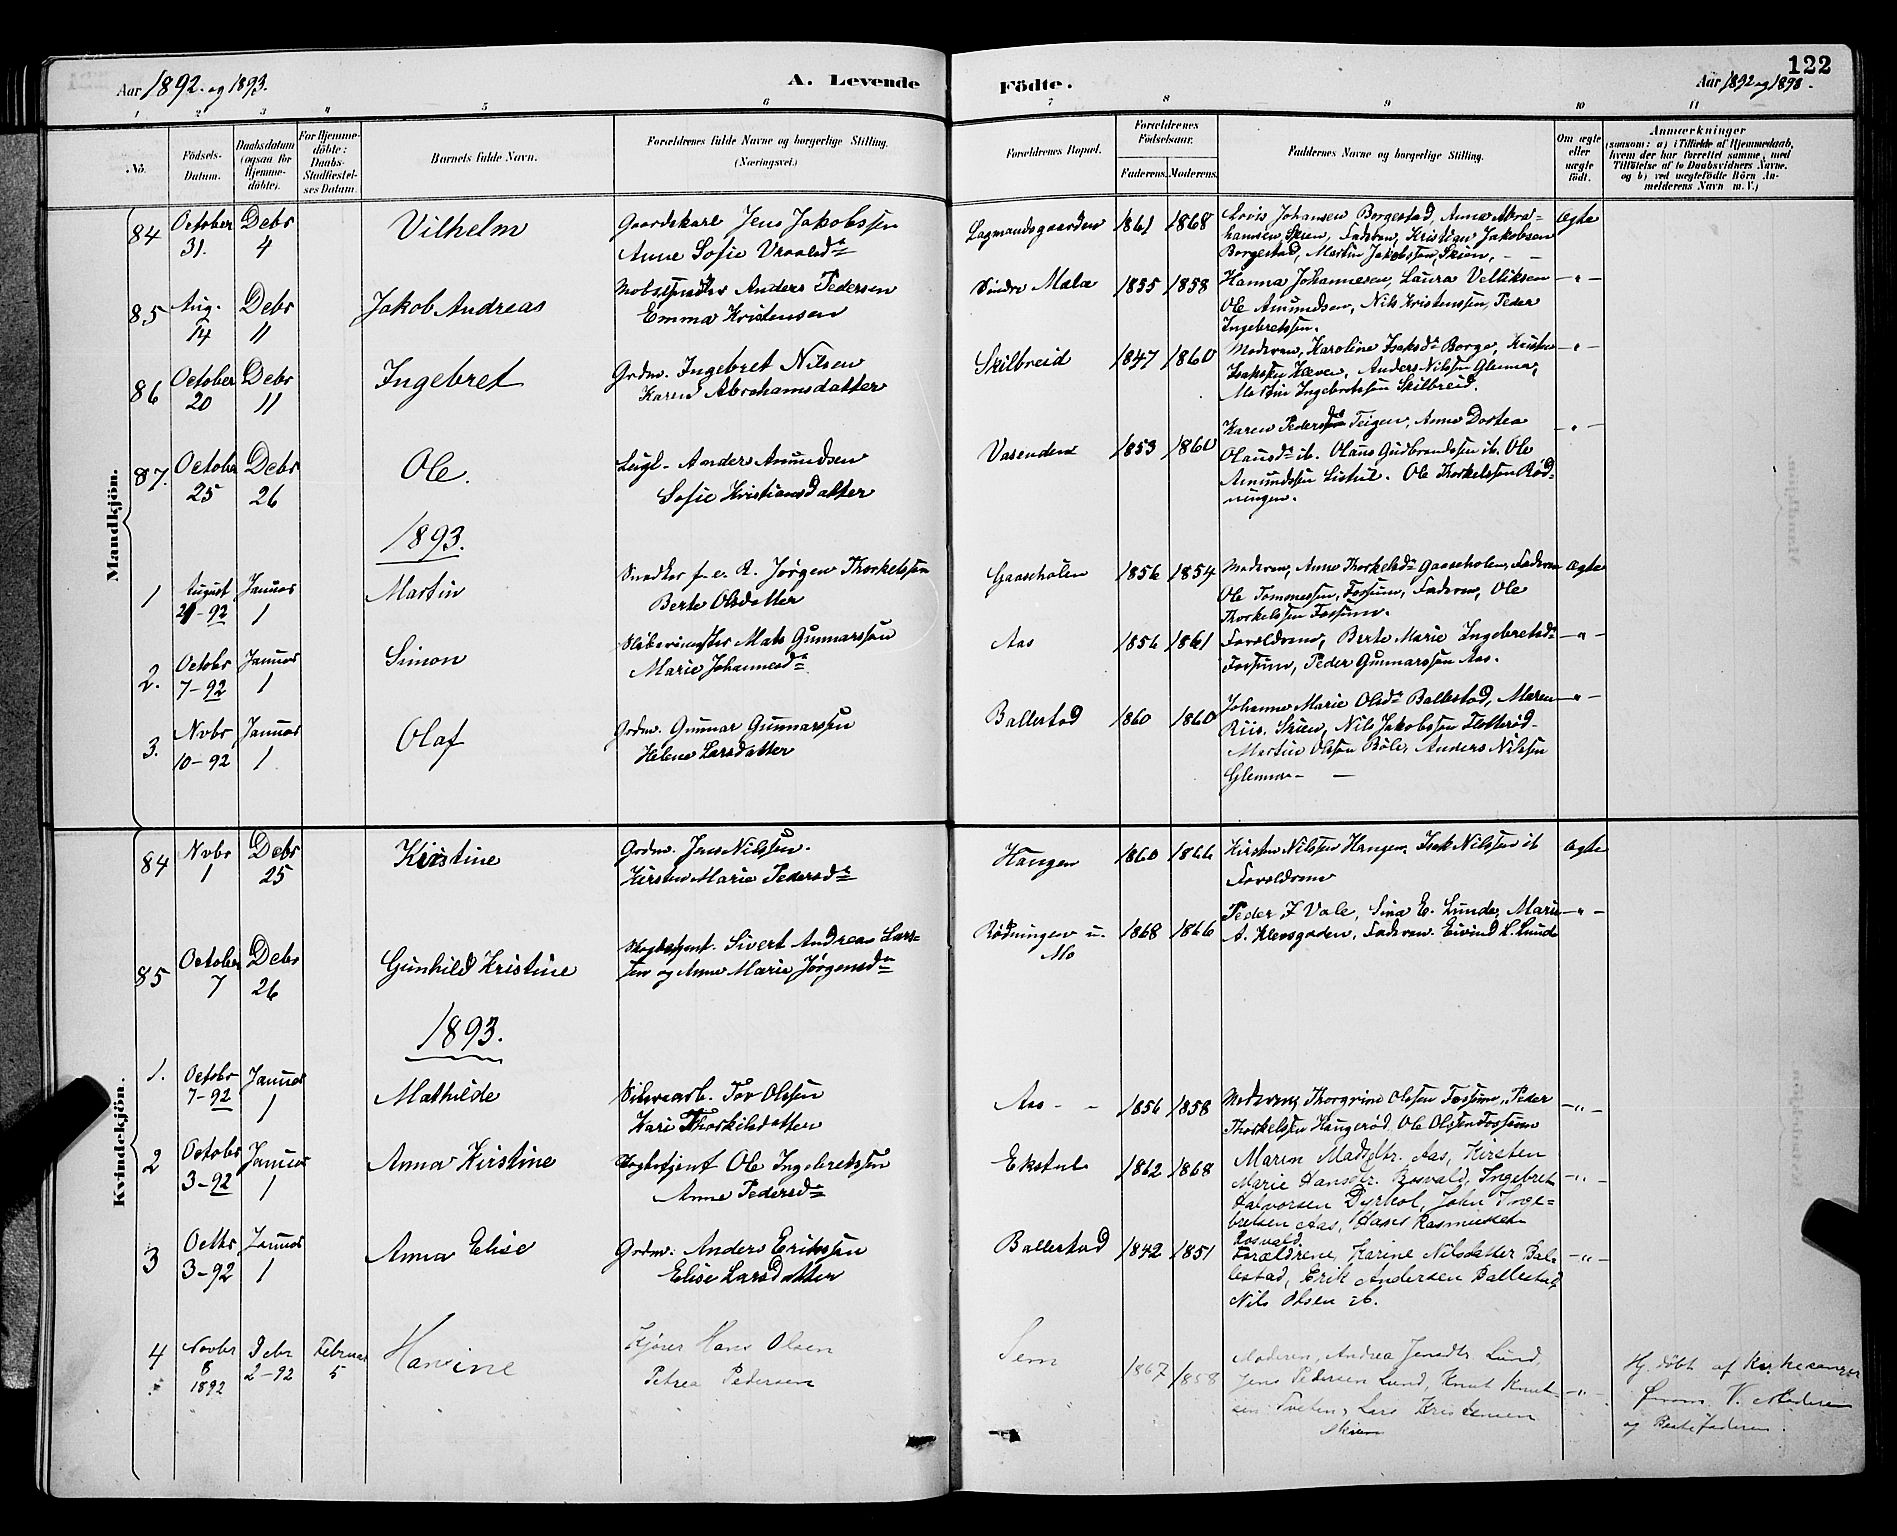 122
Aar 1892. og 1893.
A. Levende
Födte.
Aar 1892 og 1893.
1 2 3 4 5 6 7 8 9 10 11
No.
Födsels-
Datum.
Daabsdatum
(ogsaa for
Hjemme-
döbte).
For Hjemme-
döbte:
Daabs-
Stadfæstel-
ses Datum.
Barnets fulde Navn.
Forældrenes fulde Navne og borgerlige Stilling.
(Næringsvei.)
Forældrenes Bopæl.
Forældrenes
Födselsaar.
Faderens. Moderens.
Faddernes Navne og borgerlige Stilling.
Om ægte
eller
uægte
födt.
Anmærkninger
(saasom: a) i Tilfælde af Hjemmedaab,
hvem der har forrettet samme, med
Tilföielse af to Daabsvidners Navne,
og b) ved uægtefödte Börn An-
melderens Navn m. V.)
Mandkjön.
84 October 31. Debr 4 Vilhelm
Gaardskarl Jens Jakobssen
Anne Sofie
Lagmandsgaarden 1861 1868
Lovis Johansen Borgestad, Anna Abra-
hamsen Skien, Faderen, Kristian Jakobsen
Borgestad, Martin Jakobssen, Skien, -
Ægte
85 Aug. 14 Debr 11 Jakob Andreas
Anders Pedersen
Emma Kristensen
Søndre Mæla 1855 1858
Hanna Johannesen, Laura
Ole Amundsen, Nils Kristenssen, Peder
Ingebretssen.
- " -
86 October 20 Debr 11 Ingebret
Grdm. Ingebret Nilsen
Karen Abrahamsdatter
Skilbreid 1847 1860
Moderen, Karoline Isaksdr Borge, Kristen
Isakssen Anders Nilssen Glenna,
Martin Ingebretssen Skilbreid.
- " -
87. October 25 Debr 26 Ole.
Leigl. Anders Amundsen
Sofie Kristiansdatter
Vasenden 1853 1860
Karen Pedersdr Teigen, Anne Dortea
Olausdr ib. Olaus Gudbrandssen ib. Ole
Amundssen Listul. Ole Thorkelssen Rød-
ningen.
- " -
1893.
1 August 21-92 Januar 1 Martin
Snedker f. e. R. Jørgen Thorkelssen
Berte Olsdatter
Gaasehølen 1856 1854
Moderen, Anne Thorkelsdr Gaaseholen, Faderen
Ole Tommessen, Fossum, Faderen, Ole
Thorkelssen Fossum.
Ægte
2. Octobr 7-92 Januar 1 Simon
Mats Gunnarssen
Marie Johannesdr
Aas 1856 1861
Forældrene, Berte Marie Ingebretsdr
Fossum, Peder Gunnarssen Aas.
- " -
3. Novbr 10-92 Januar 1 Olaf
Grdm. Gunnar Gunnarssen
Helene Larsdatter
Ballestad 1860 1860
Johanne Marie Olsdr Ballestad, Maren
Riis. Skien, Nils Jakobssen Flotterød
Martin Olssen Bøle, Anders Nilssen
Glenna - -
- " -
Kvindekjön.
84 Novbr 1 Debr 25 Kirstine
Grdm. Jens Nilssen.
Kirsten Marie Pedersdr
Haugen 1860 1866
Kirsten Nilssen Haugen, Isak Nilssen ib
Forældrene
Ægte
85 October 7 Debr 26 Gunhild Kristine
Sivert Andreas Lars-
sen og Anne Marie Jørgensdr
Rødningen u. Mo 1868 1866
Peder I Vale, Sina E. Lunde, Marie
A. Klevgaden, Faderen. Eivind L. Lunde
- " -
1893.
1. Octobr 7-92 Januar 1 Mathilde
Tov Olssen
Kari Thorkilsdatter
Aas - - 1856 1858
Moderen, Thorgrine Olssen Fossum, Peder
Thorkelssen Haugerød. Ole Olssen Fossum
- " -
2 Octobr 3-92 Januar 1 Anna Kirstine
Ole Ingebretssen
Anne Pedersdr
Ekstul 1862 1868
Maren Madsdtr. Aas, Kirsten
Marie Hansdtr. Rosvald, Ingebret
Halvorsen Dyrkol, John Inge-
bretsen Aas, Hans Rasmussen
Rosvald.
- " -
3 Octbr 3-92 Januar 1 Anna Elise
Grdm. Anders Erikssen
Elise Larsdatter
Ballestad 1842 1851
Forældrene, Karine Nilsdatter Bal-
lestad, Erik Andersen Ballestad,
Nils Olsen ib.
- " -
4 Novbr 8 1892 Debr 2-92 Februar 5 Hansine
Kjører Hans Olsen
Petrea Pedersen
Sem 1867 1858
Moderen, Andrea Jensdtr. Lund,
Jens Pedersen Lund, Knut Knut-
sen Tveten, Lars Kristensen
Skien
- " -
Hj. døbt af Kirkesanger
V. Moderen
og Faderen.